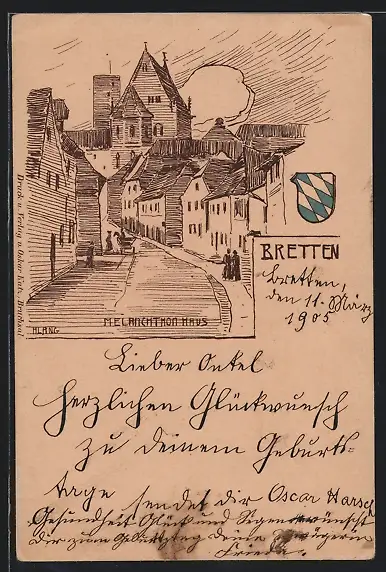 Druck u. Verlag v. Oskar Katz, Bruchsal.
H. LANG
MELANCHTHON-HAUS
BRETTEN
Bretten,
den 11. März
1905
Lieber Onkel
Herzlichen Glückwunsch
zu deinem Geburts-
tage sendet dir Oscar Harsch
Gesundheit Glück und Segen wünscht
Dir zum Geburtstag deine Schwägerin
Frieda.